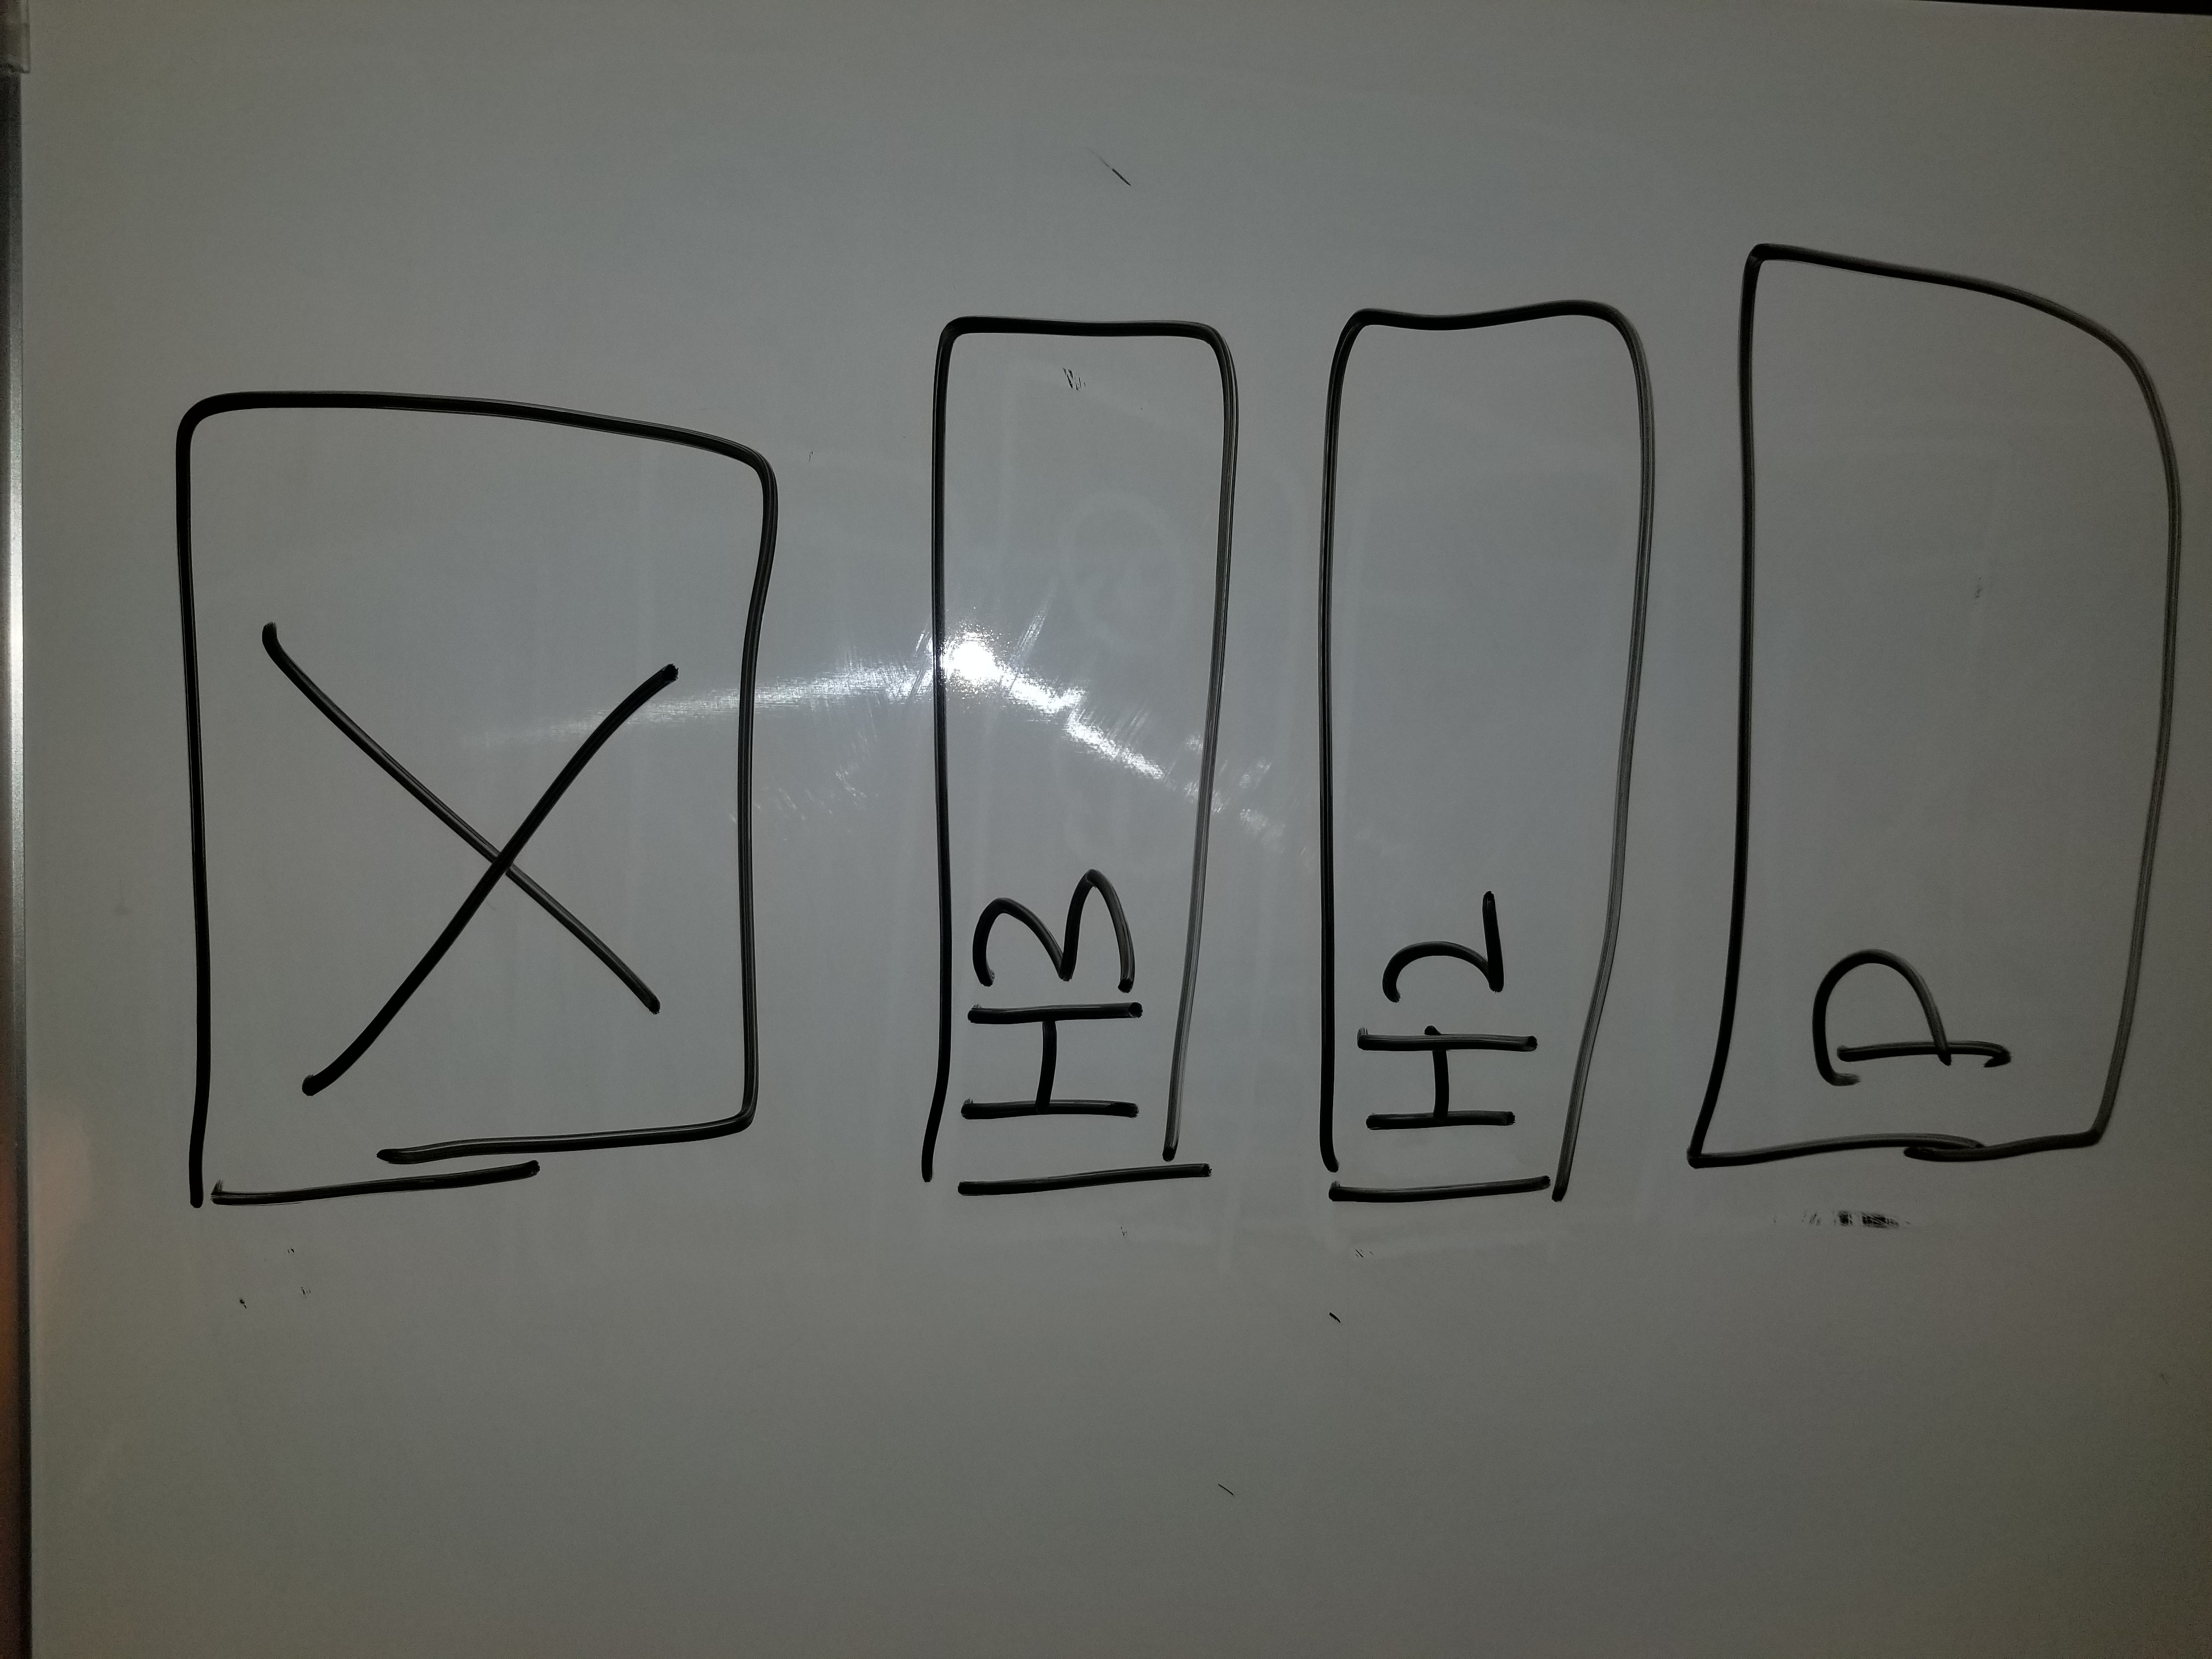 H3
H2
P